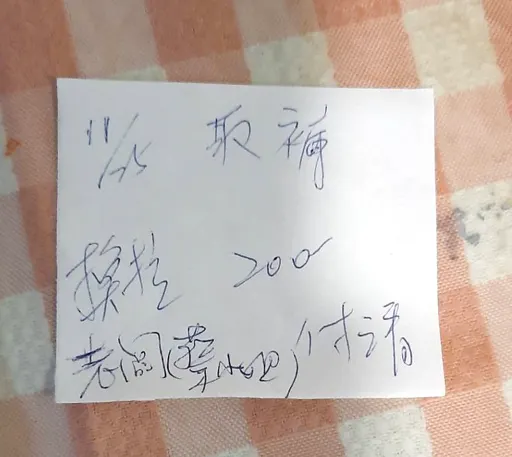 11/25 取褲
換拉 200
老闆(蔡小姐)付清